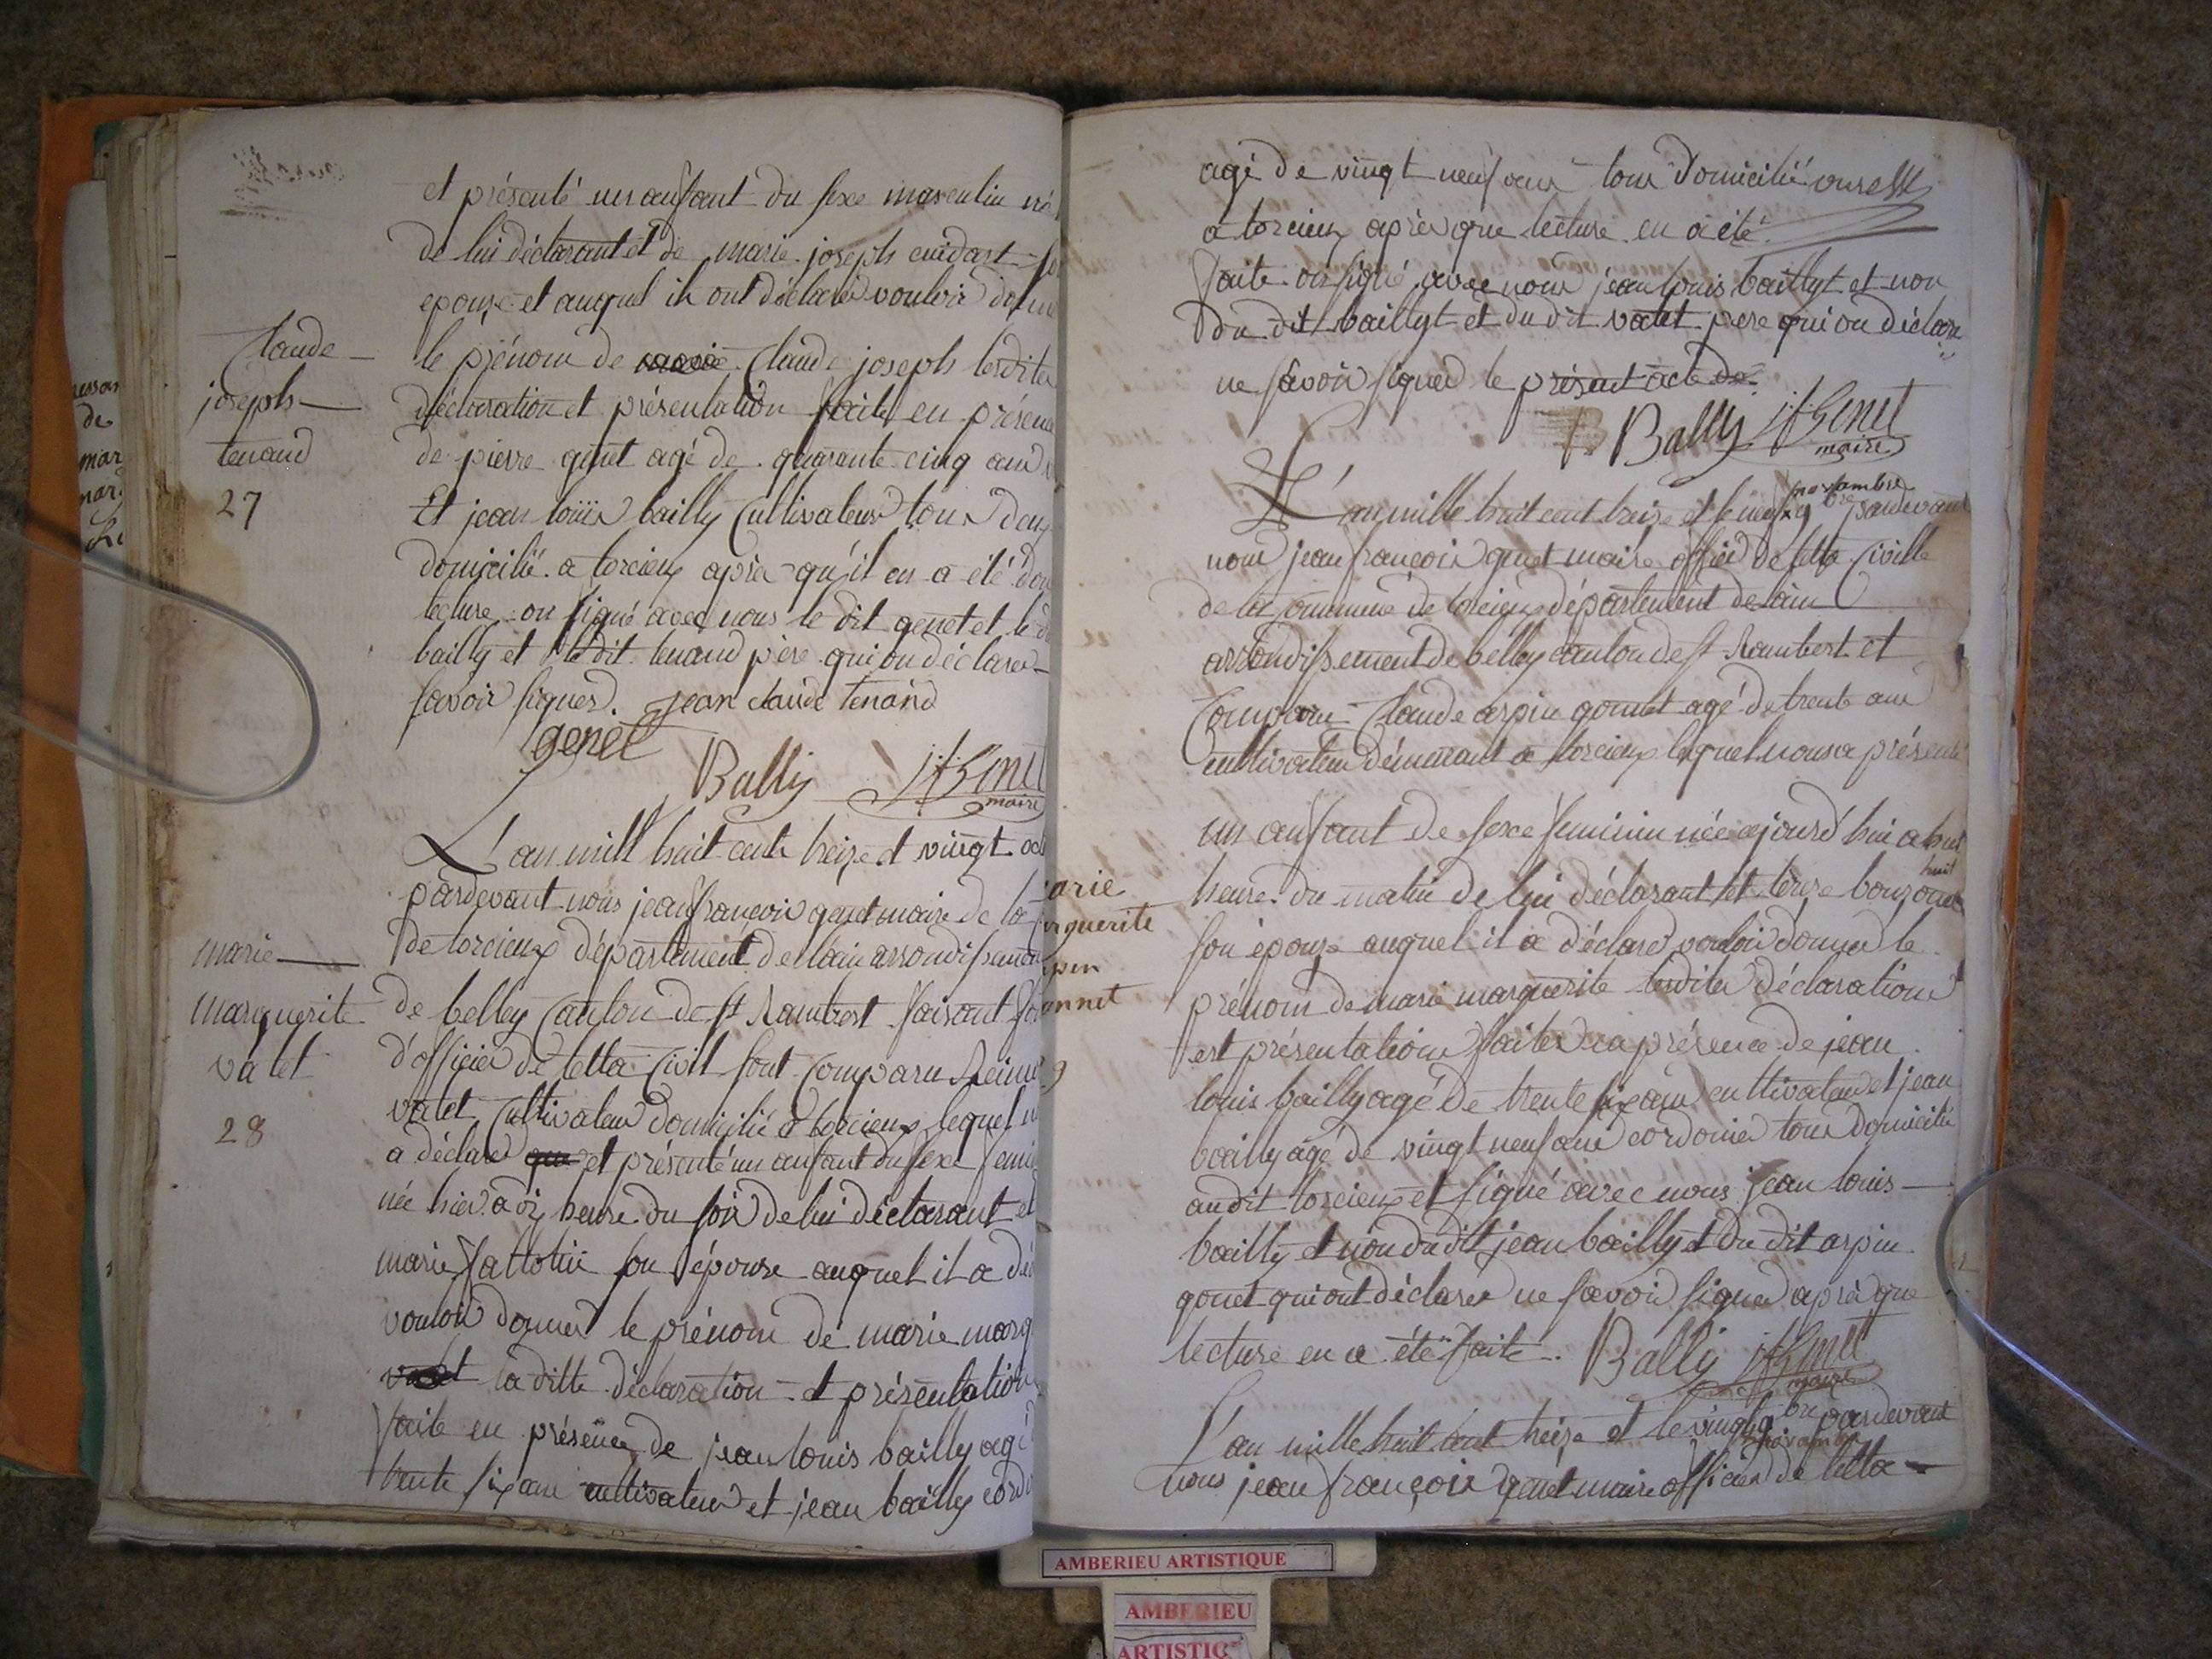 et présenté un anfant du sexe masculin né
de lui déclarant et de marie joseph
epouse et auquel ils ont déclaré vouloir
Claude
le prénom de marie Claude joseph lesdites
joseph
déclaration et présentation faite en présence
tenand
de pierre genet agé de quarante cinq ans
27
Et jean louis bailly Cultivateurs tous deux
domicilié a torcieux après qu'il en a été
lecture on signé avec nous le dit genet et le
bailly et le dit tenand père qui on déclaré
savoir signer. jean claude tenand
genet
Bally JfGenet
maire
L'an mill huit cent treize et vingt
pardevant nous jean françois genet maire de la
de torcieux département de l'ain arrondissement
marie
marguerite
de belley Canton de st Rambert faisant
valet
d'officier de letta Civil sont Comparu
28
valet Cultivateur domicilié a torcieux lequel
a déclaré que et présenté un anfant du sexe
née hier a dix heure du soir de lui déclarant et
marie son épouse auquel il a
vouloir donner le prénom de marie
valet la ditte déclaration et présentation
faite en présence de jean louis bailly agé
trente six ans cultivateur et jean bailly
agé de vingt neuf ans tous domicilié
a torcieux après que lecture en a été
faite on signé avec nous jean louis baillyt et non
du dit baillyt et du dit valet père qui on déclaré
ne savoir signer le présent acte
Bally JfGenet
maire
novambre
L'an mille huit cent treize et le neuf 9bre pardevant
nous jean françois genet maire officier de letta Civille
de la Commune de torcieux département de lain
arrondissement de belley canton de st Rambert et
Comparu Claude arpin gonnet agé de trente ans
cultivateur démeurant a torcieux lequel nous a présenté
un anfant de sexe feminin née cejourd'hui a huit
huit
arie
heure du matin de lui déclarant et térèse
rguerite
son épouse auquel il a déclaré vouloir donner le
pin
prénom de marie marguerite lesdites déclaration
onnet
est présentation faites en présence de jean
9
louis bailly agé de trente six ans cultivateur et jean
bailly agé de vingt neuf ans cordonier tous domicilié
audit torcieux et signé avec nous jean louis
bailly et non du dit jean bailly et du dit arpin
gonet qui ont déclarer ne savoir signer après que
lecture en a été faite. Bally JfGenet
maire
L'an mille huit cent treize et le vingt 9bre pardevant
novambre
nous jean françois genet maire officier de letta
AMBERIEU ARTISTIQUE
AMBERIEU
ARTISTIQ